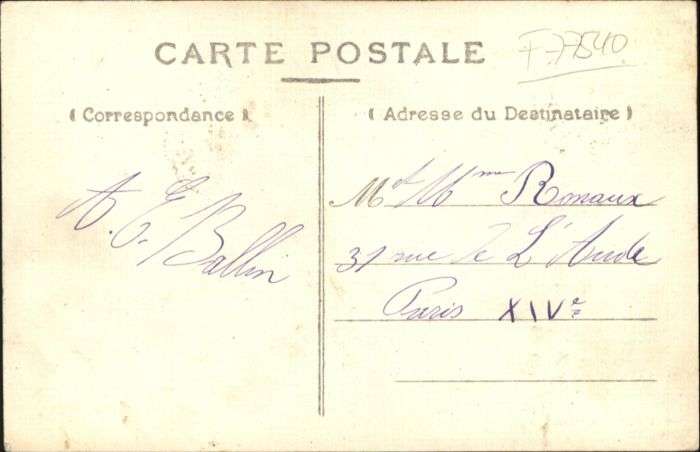 CARTE POSTALE
F 77540
( Correspondance )
( Adresse du Destinataire )
A. E. Ballin
Mr et Mme Romaux
31 rue de L'Aude
Paris XIVe